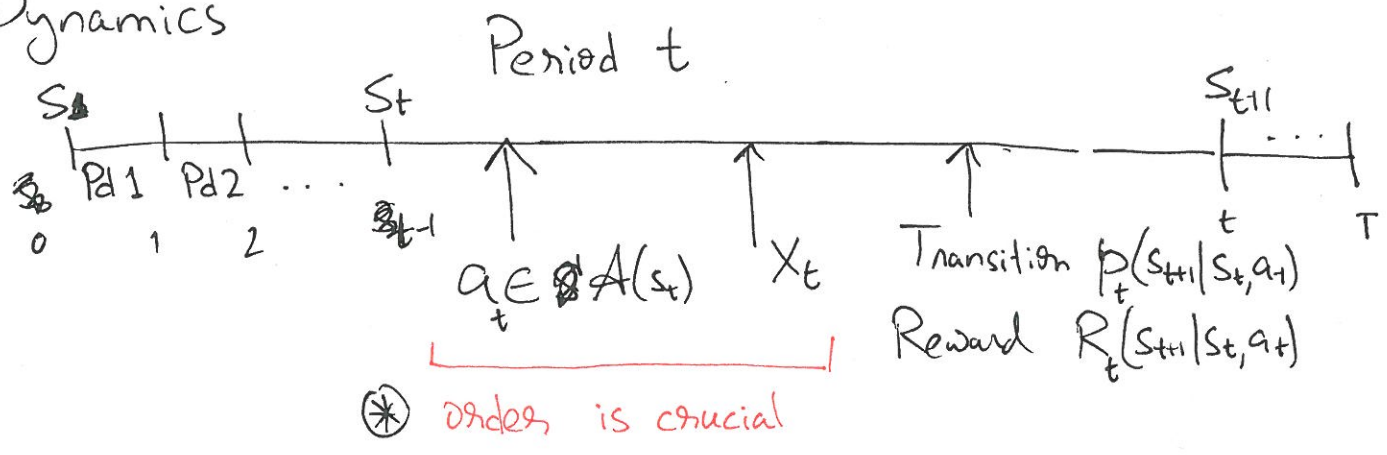 Dynamics
Period t
S₁ Sₜ Sₜ₊₁
Pd 1 Pd 2 .... ....
0 1 2 t-1 t T
aₜ ∈ A(sₜ) Xₜ Transition pₜ(sₜ₊₁|sₜ,aₜ)
Reward Rₜ(sₜ₊₁|sₜ,aₜ)
⊛ order is crucial